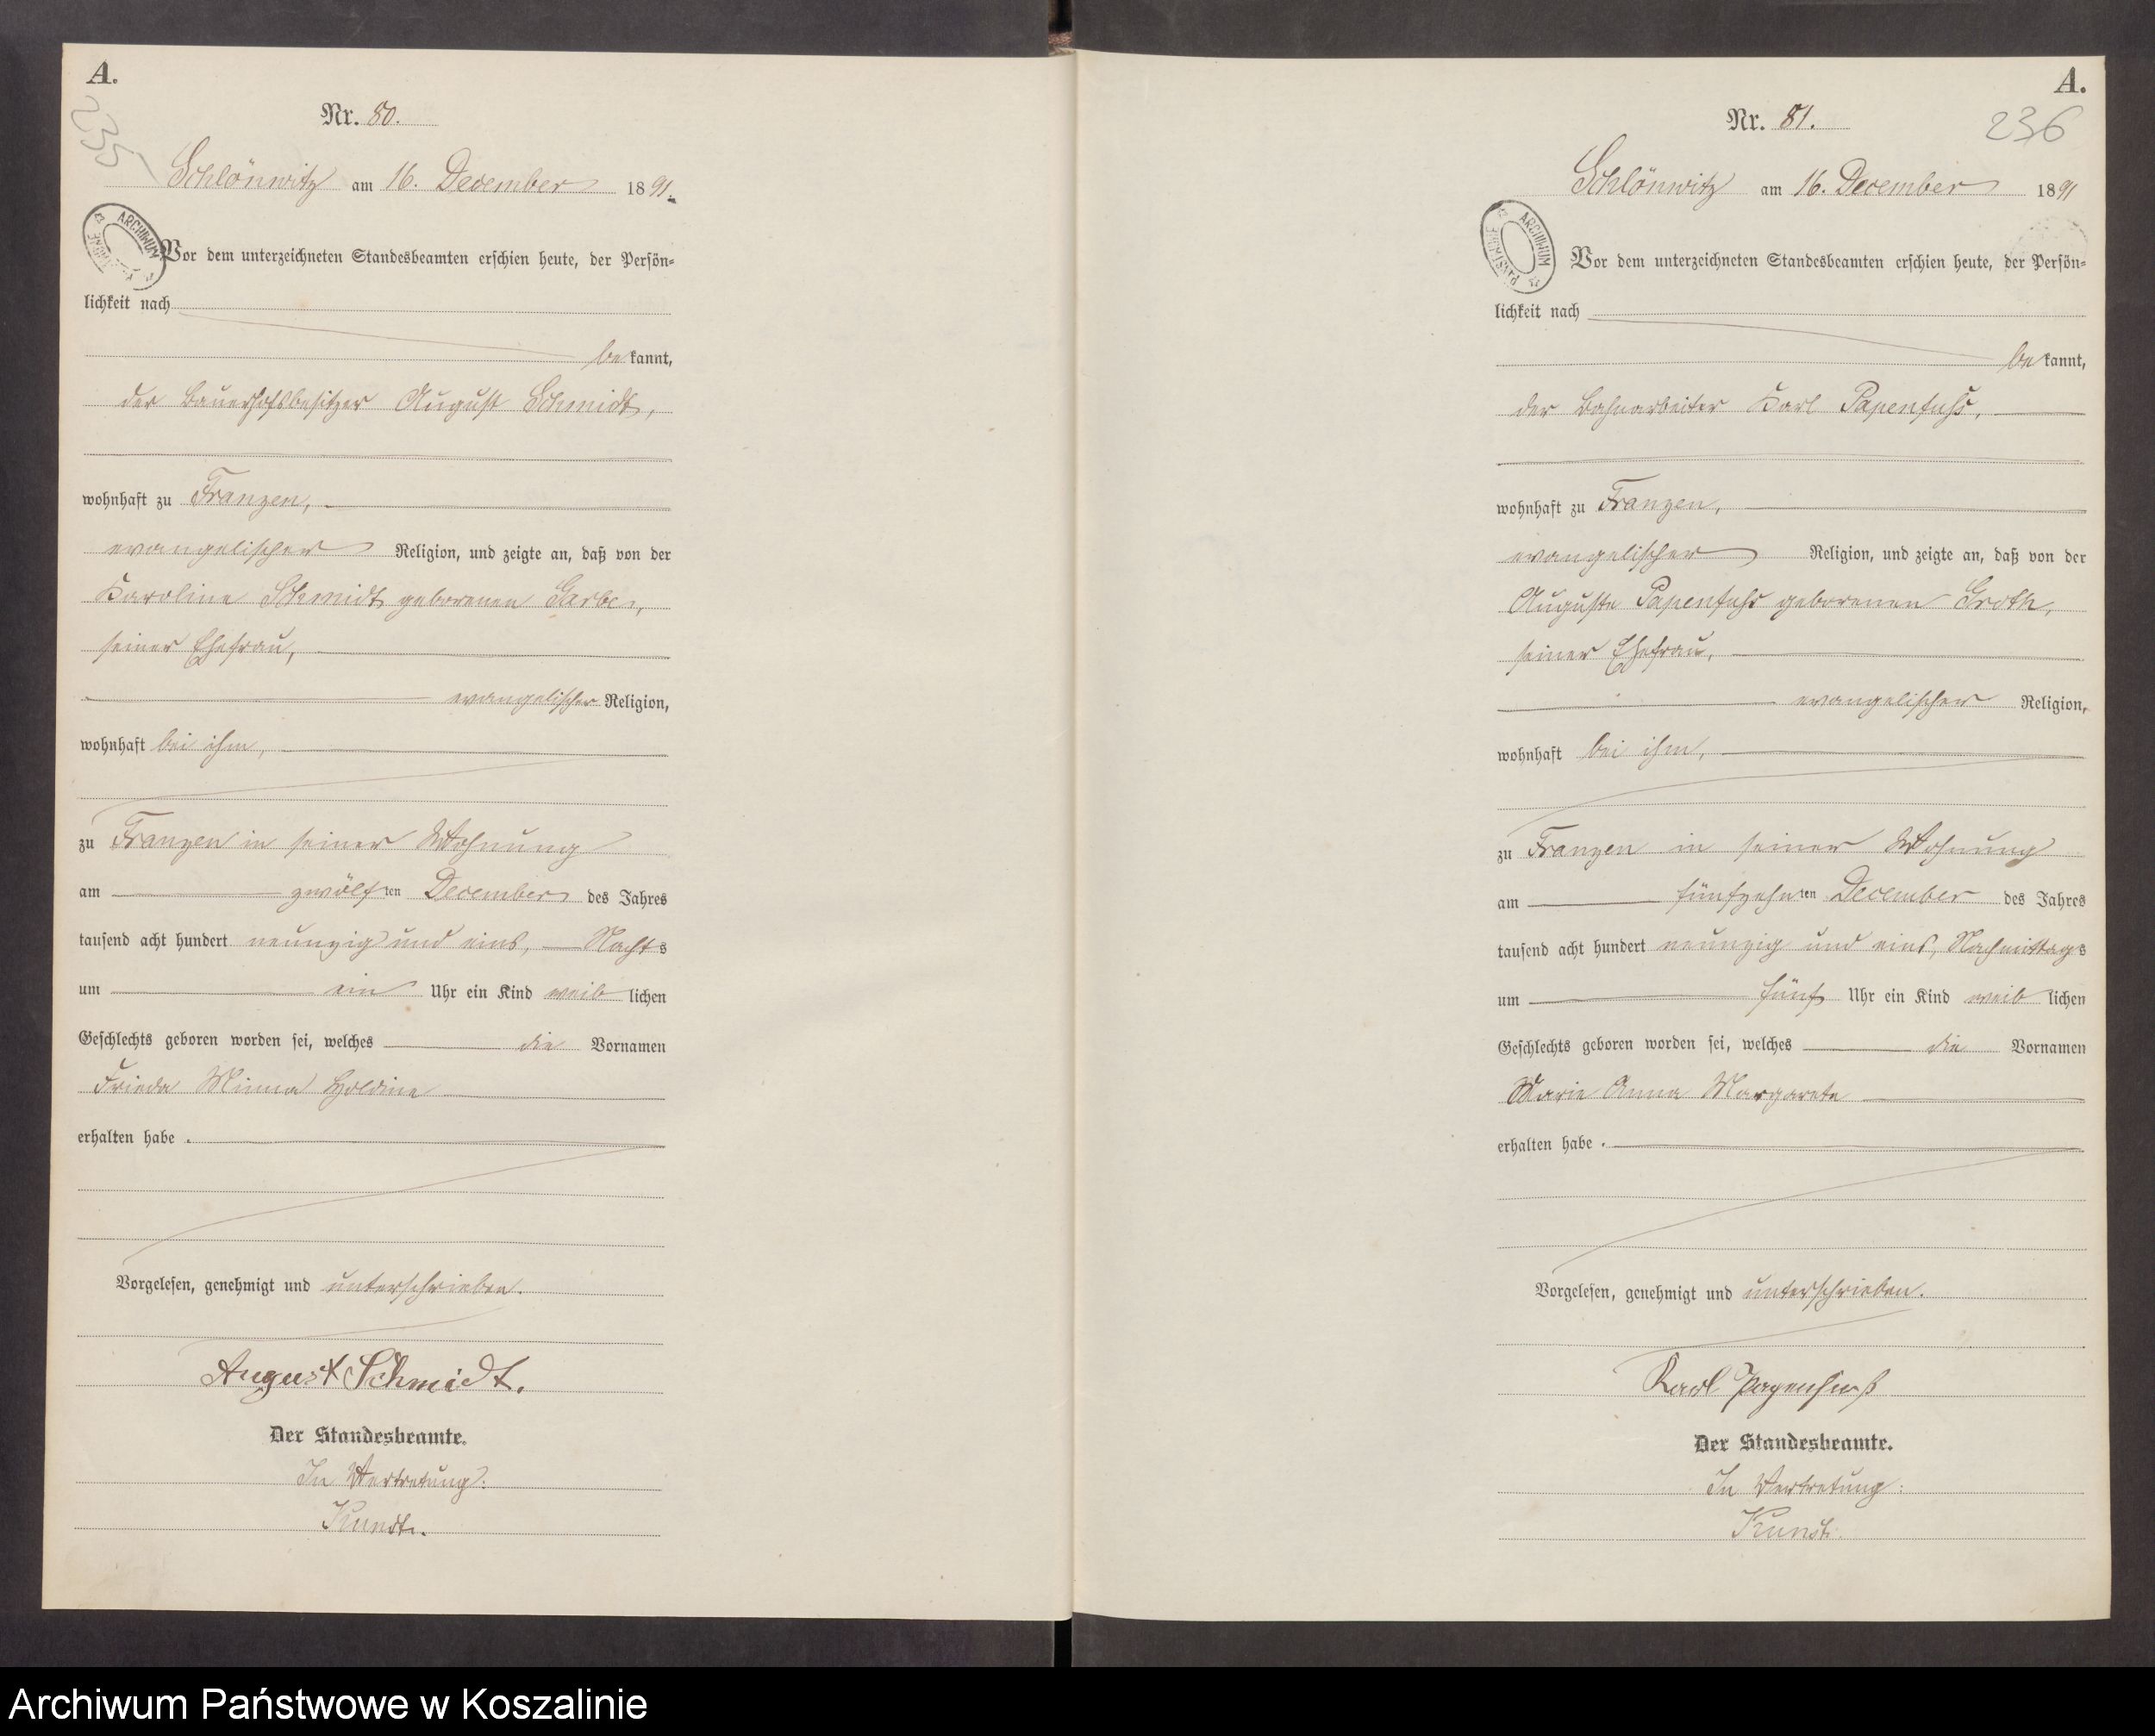 A.
235
Nr. 80.
Schlönwitz am 16. December 1891.
ARCHIWUM
Vor dem unterzeichneten Standesbeamten erschien heute, der Persön=
lichkeit nach
bekannt,
der Bauerhofsbesitzer August Schmidt,
wohnhaft zu Franzen,
evangelischer Religion, und zeigte an, daß von der
Karoline Schmidt geborenen Garbe,
seiner Ehefrau,
evangelischer Religion,
wohnhaft bei ihm,
zu Franzen in seiner Wohnung
am zwölften December des Jahres
tausend acht hundert neunzig und eins, Nachts
um ein Uhr ein Kind weiblichen
Geschlechts geboren worden sei, welches die Vornamen
Frieda Minna Holdine
erhalten habe.
Vorgelesen, genehmigt und unterschrieben.
August Schmidt.
Der Standesbeamte.
In Vertretung:
A.
236
Nr. 81.
Schlönwitz am 16. December 1891
ARCHIWUM PAŃSTWOWE
Vor dem unterzeichneten Standesbeamten erschien heute, der Persön=
lichkeit nach
bekannt,
der Bahnarbeiter Karl Papenfuhs,
wohnhaft zu Franzen,
evangelischer Religion, und zeigte an, daß von der
Auguste Papenfuhs geborenen Groth,
seiner Ehefrau,
evangelischer Religion,
wohnhaft bei ihm,
zu Franzen in seiner Wohnung
am fünfzehnten December des Jahres
tausend acht hundert neunzig und eins, Nachmittags
um fünf Uhr ein Kind weiblichen
Geschlechts geboren worden sei, welches die Vornamen
Marie Anna Margarete
erhalten habe.
Vorgelesen, genehmigt und unterschrieben.
Karl Papenfuß
Der Standesbeamte.
In Vertretung:
Archiwum Państwowe w Koszalinie